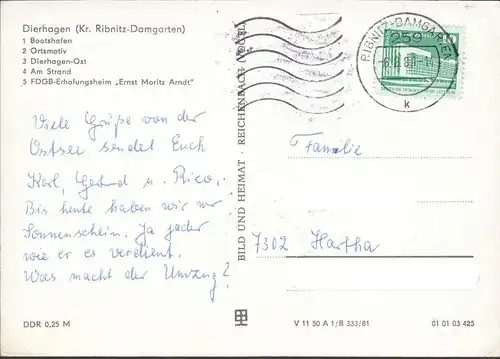 Dierhagen (Kr. Ribnitz-Damgarten)
1 Bootshafen
2 Ortsmotiv
3 Dierhagen-Ost
4 Am Strand
5 FDGB-Erholungsheim „Ernst Moritz Arndt"
Viele Grüße von der
Ostsee sendet Euch
Karl, Gertrud u. Rico,
Bis heute haben wir nur
Sonnenschein. Ja jeder
wie er es verdient.
Was macht der Umzug?
DDR 0,25 M
BILD UND HEIMAT REICHENBACH (VOGTL)
RIBNITZ-DAMGARTEN
259
k
Familie
7302 Hartha
V 11 50 A 1/B 333/81
01 01 03 425